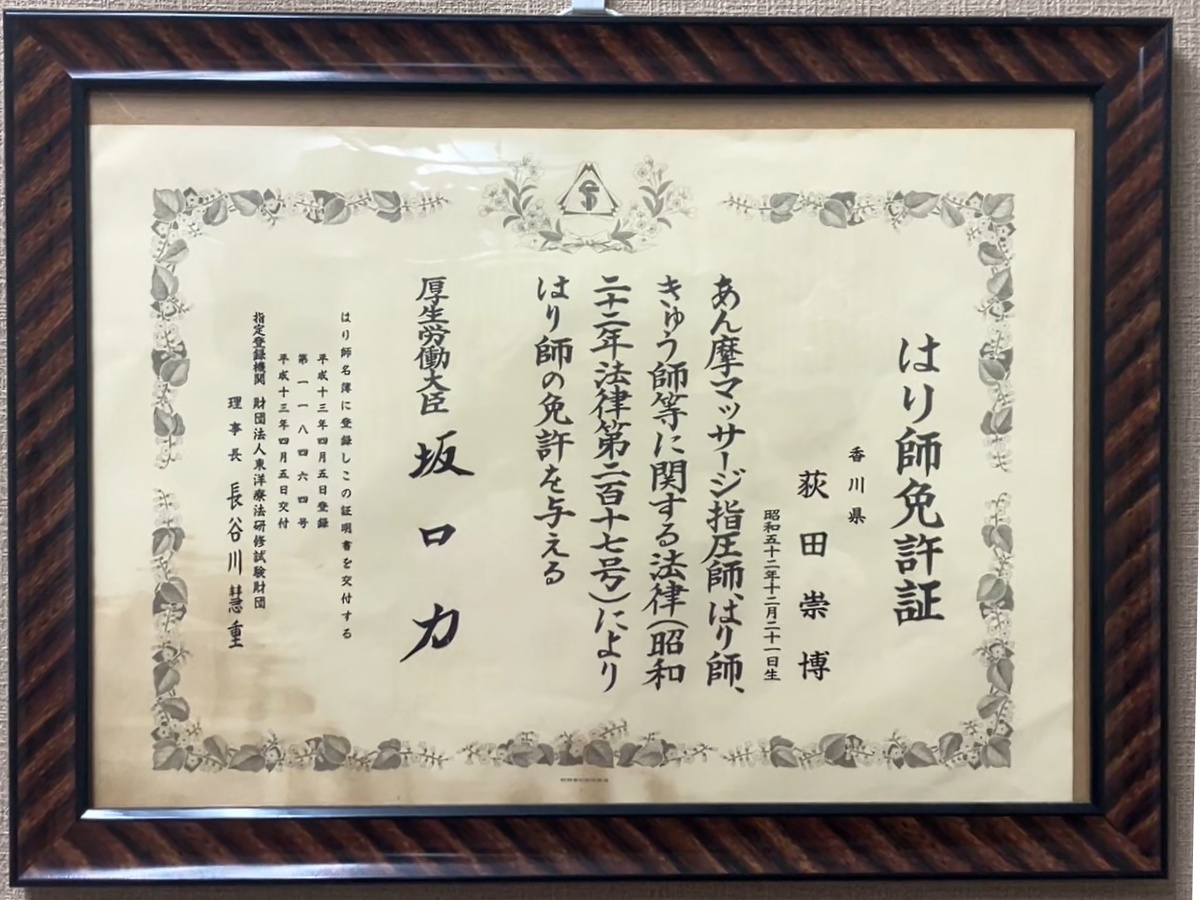 はり師免許証
香川県
荻田崇博
昭和五十二年十二月二十一日生
あん摩マッサージ指圧師、はり師、
きゅう師等に関する法律(昭和
二十二年法律第二百十七号)により
はり師の免許を与える
厚生労働大臣 坂口力
はり師名簿に登録しこの証明書を交付する
平成十三年四月五日登録
第一一八四六四号
平成十三年四月五日交付
指定登録機関 財団法人東洋療法研修試験財団
理事長 長谷川慧重